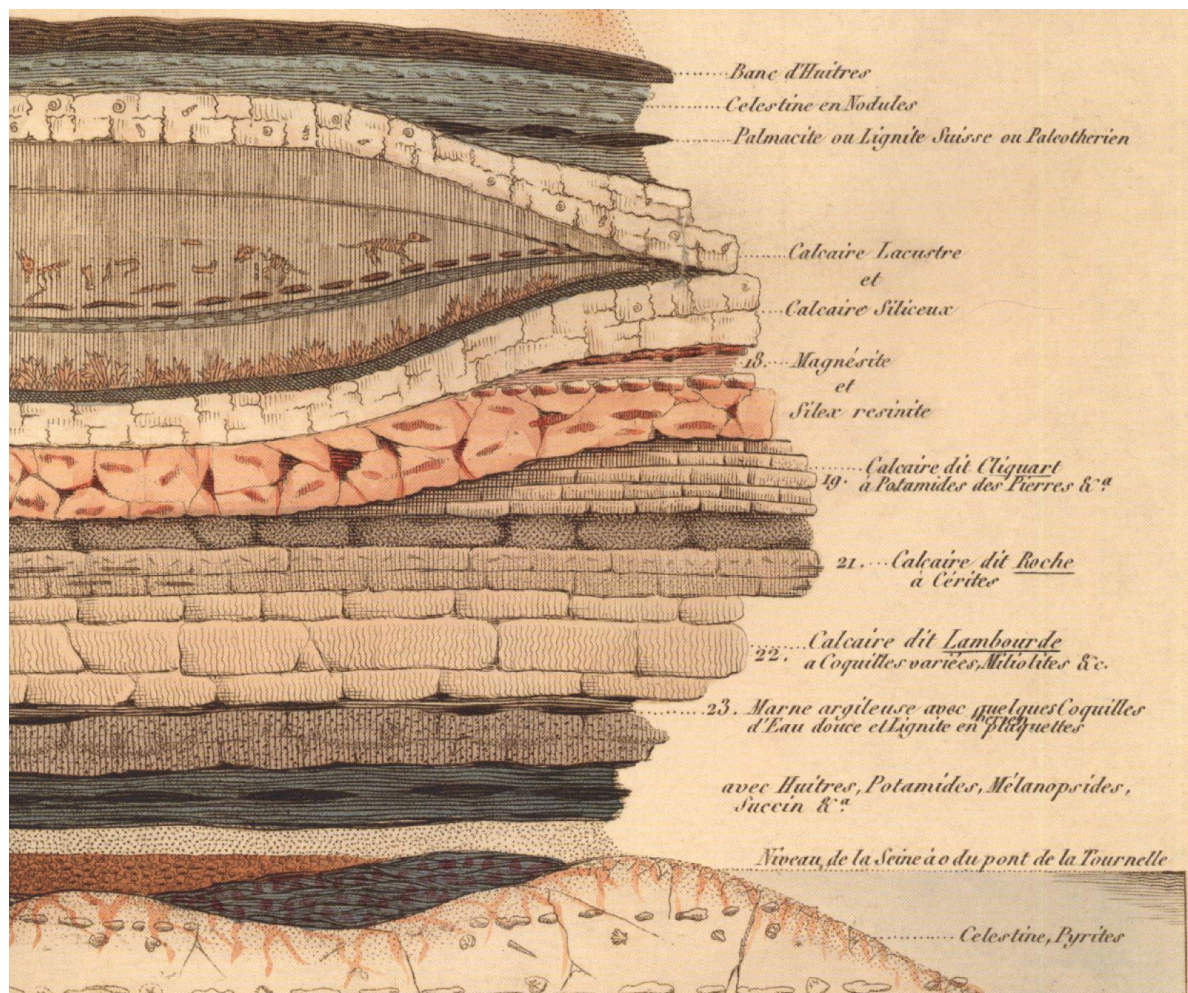 Banc d'Huitres
Celestine en Nodules
Palmacite ou Lignite Suisse ou Paleotherien
Calcaire Lacustre
et
Calcaire Siliceux
18. Magnésite
et
Silex resinite
Calcaire dit Cliquart
19. à Potamides des Pierres &a
21. Calcaire dit Roche
à Cérites
Calcaire dit Lambourde
22. a Coquilles variées, Miliolites &c.
23. Marne argileuse avec quelques Coquilles
d'Eau douce et Lignite en plaquettes
avec Huitres, Potamides, Mélanopsides,
Succin &a
Niveau de la Seine à 0 du pont de la Tournelle
Celestine, Pyrites